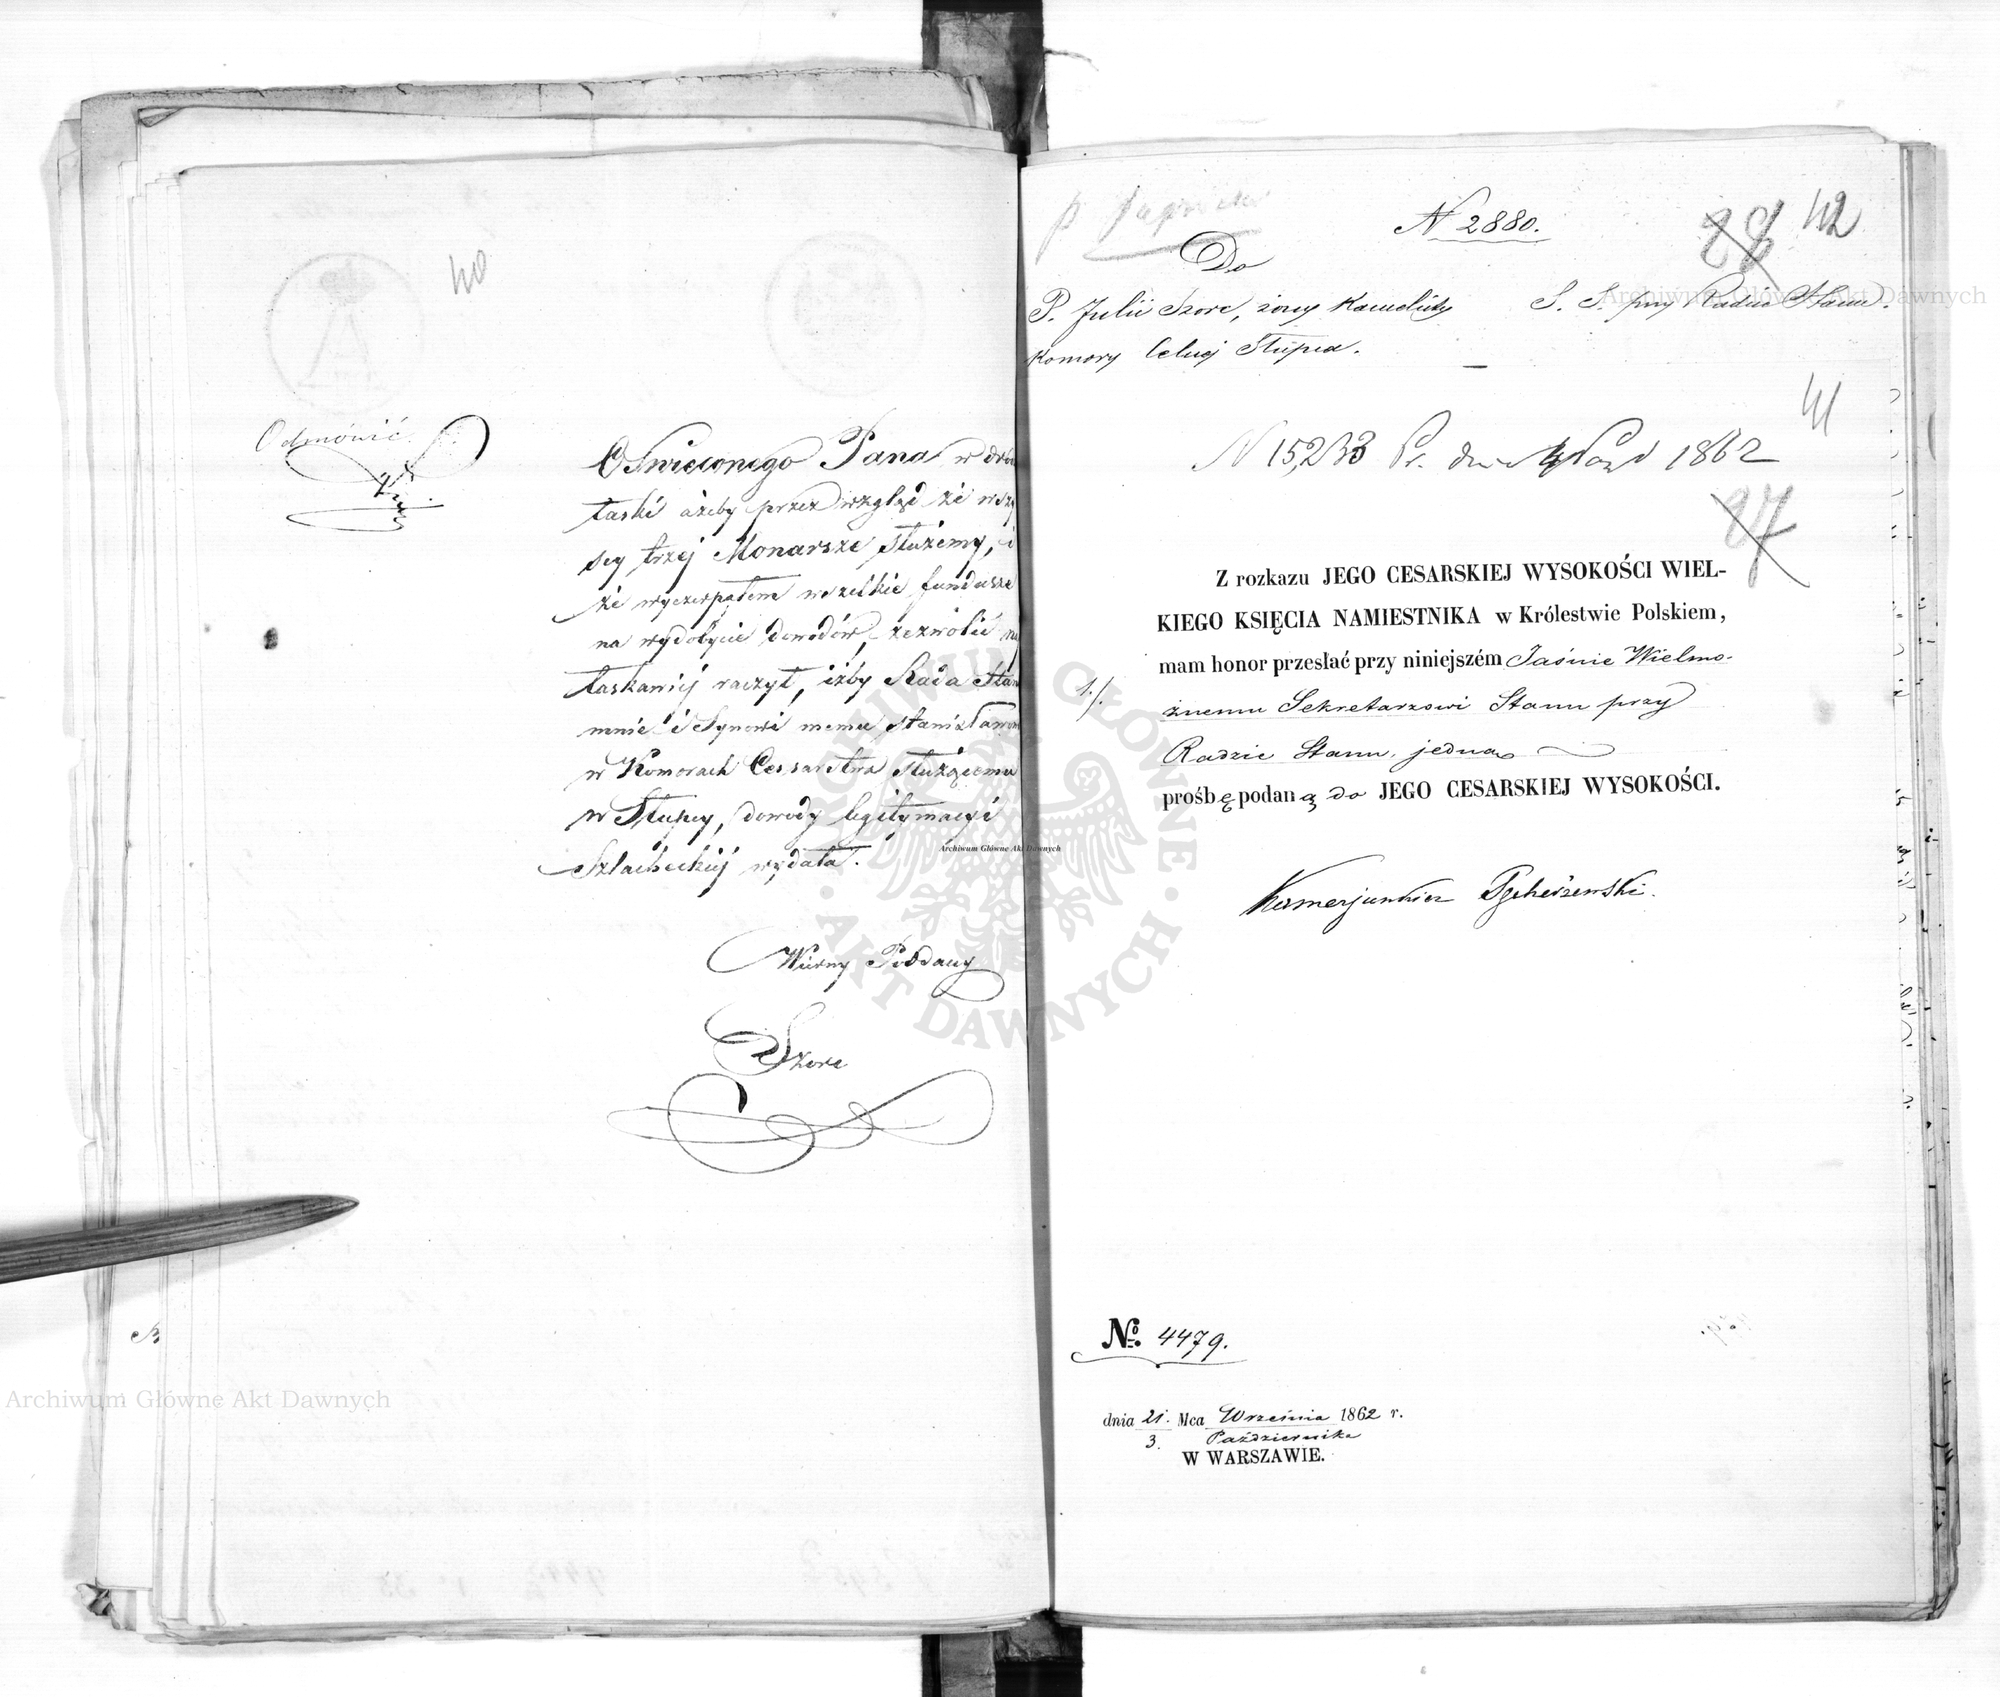 40
Odmówić.
Oświeconego Pana w dro
łaski ażeby przez wzgląd że wszy
scy trzej Monarsze służemy, i
że wyczerpałem wszelkie fundusze
na wydobycie dowodów, zezwolić na
łaskawiej raczył, iżby Rada Stan
mnie i Synowi memu Stanisławow
w Komorach Cesarstwa służącemu
w Słupcy, dowody legitymacyi
Szlacheckiej wydała.
Wierny Poddany
Szore
N 2880.
28 42
Do
P. Julii Szore, żony
S. S. przy Radzie Stanu.
Komory Celnej Słupca.
41
N 15,233 Pr. dnia Paźd 1862
27
Z rozkazu JEGO CESARSKIEJ WYSOKOŚCI WIEL-
KIEGO KSIĘCIA NAMIESTNIKA w Królestwie Polskiem,
mam honor przesłać przy niniejszém Jaśnie Wielmo-
1./.
żnemu Sekretarzowi Stanu przy
Radzie Stanu, jedną
prośbę podaną do JEGO CESARSKIEJ WYSOKOŚCI.
Kamerjunkier
№ 4479.
dnia 21. Mca Września 1862 r.
3. Października
W WARSZAWIE.
Archiwum Główne Akt Dawnych
Archiwum Główne Akt Dawnych
Archiwum Główne Akt Dawnych
ARCHIWUM GŁÓWNE · AKT DAWNYCH ·